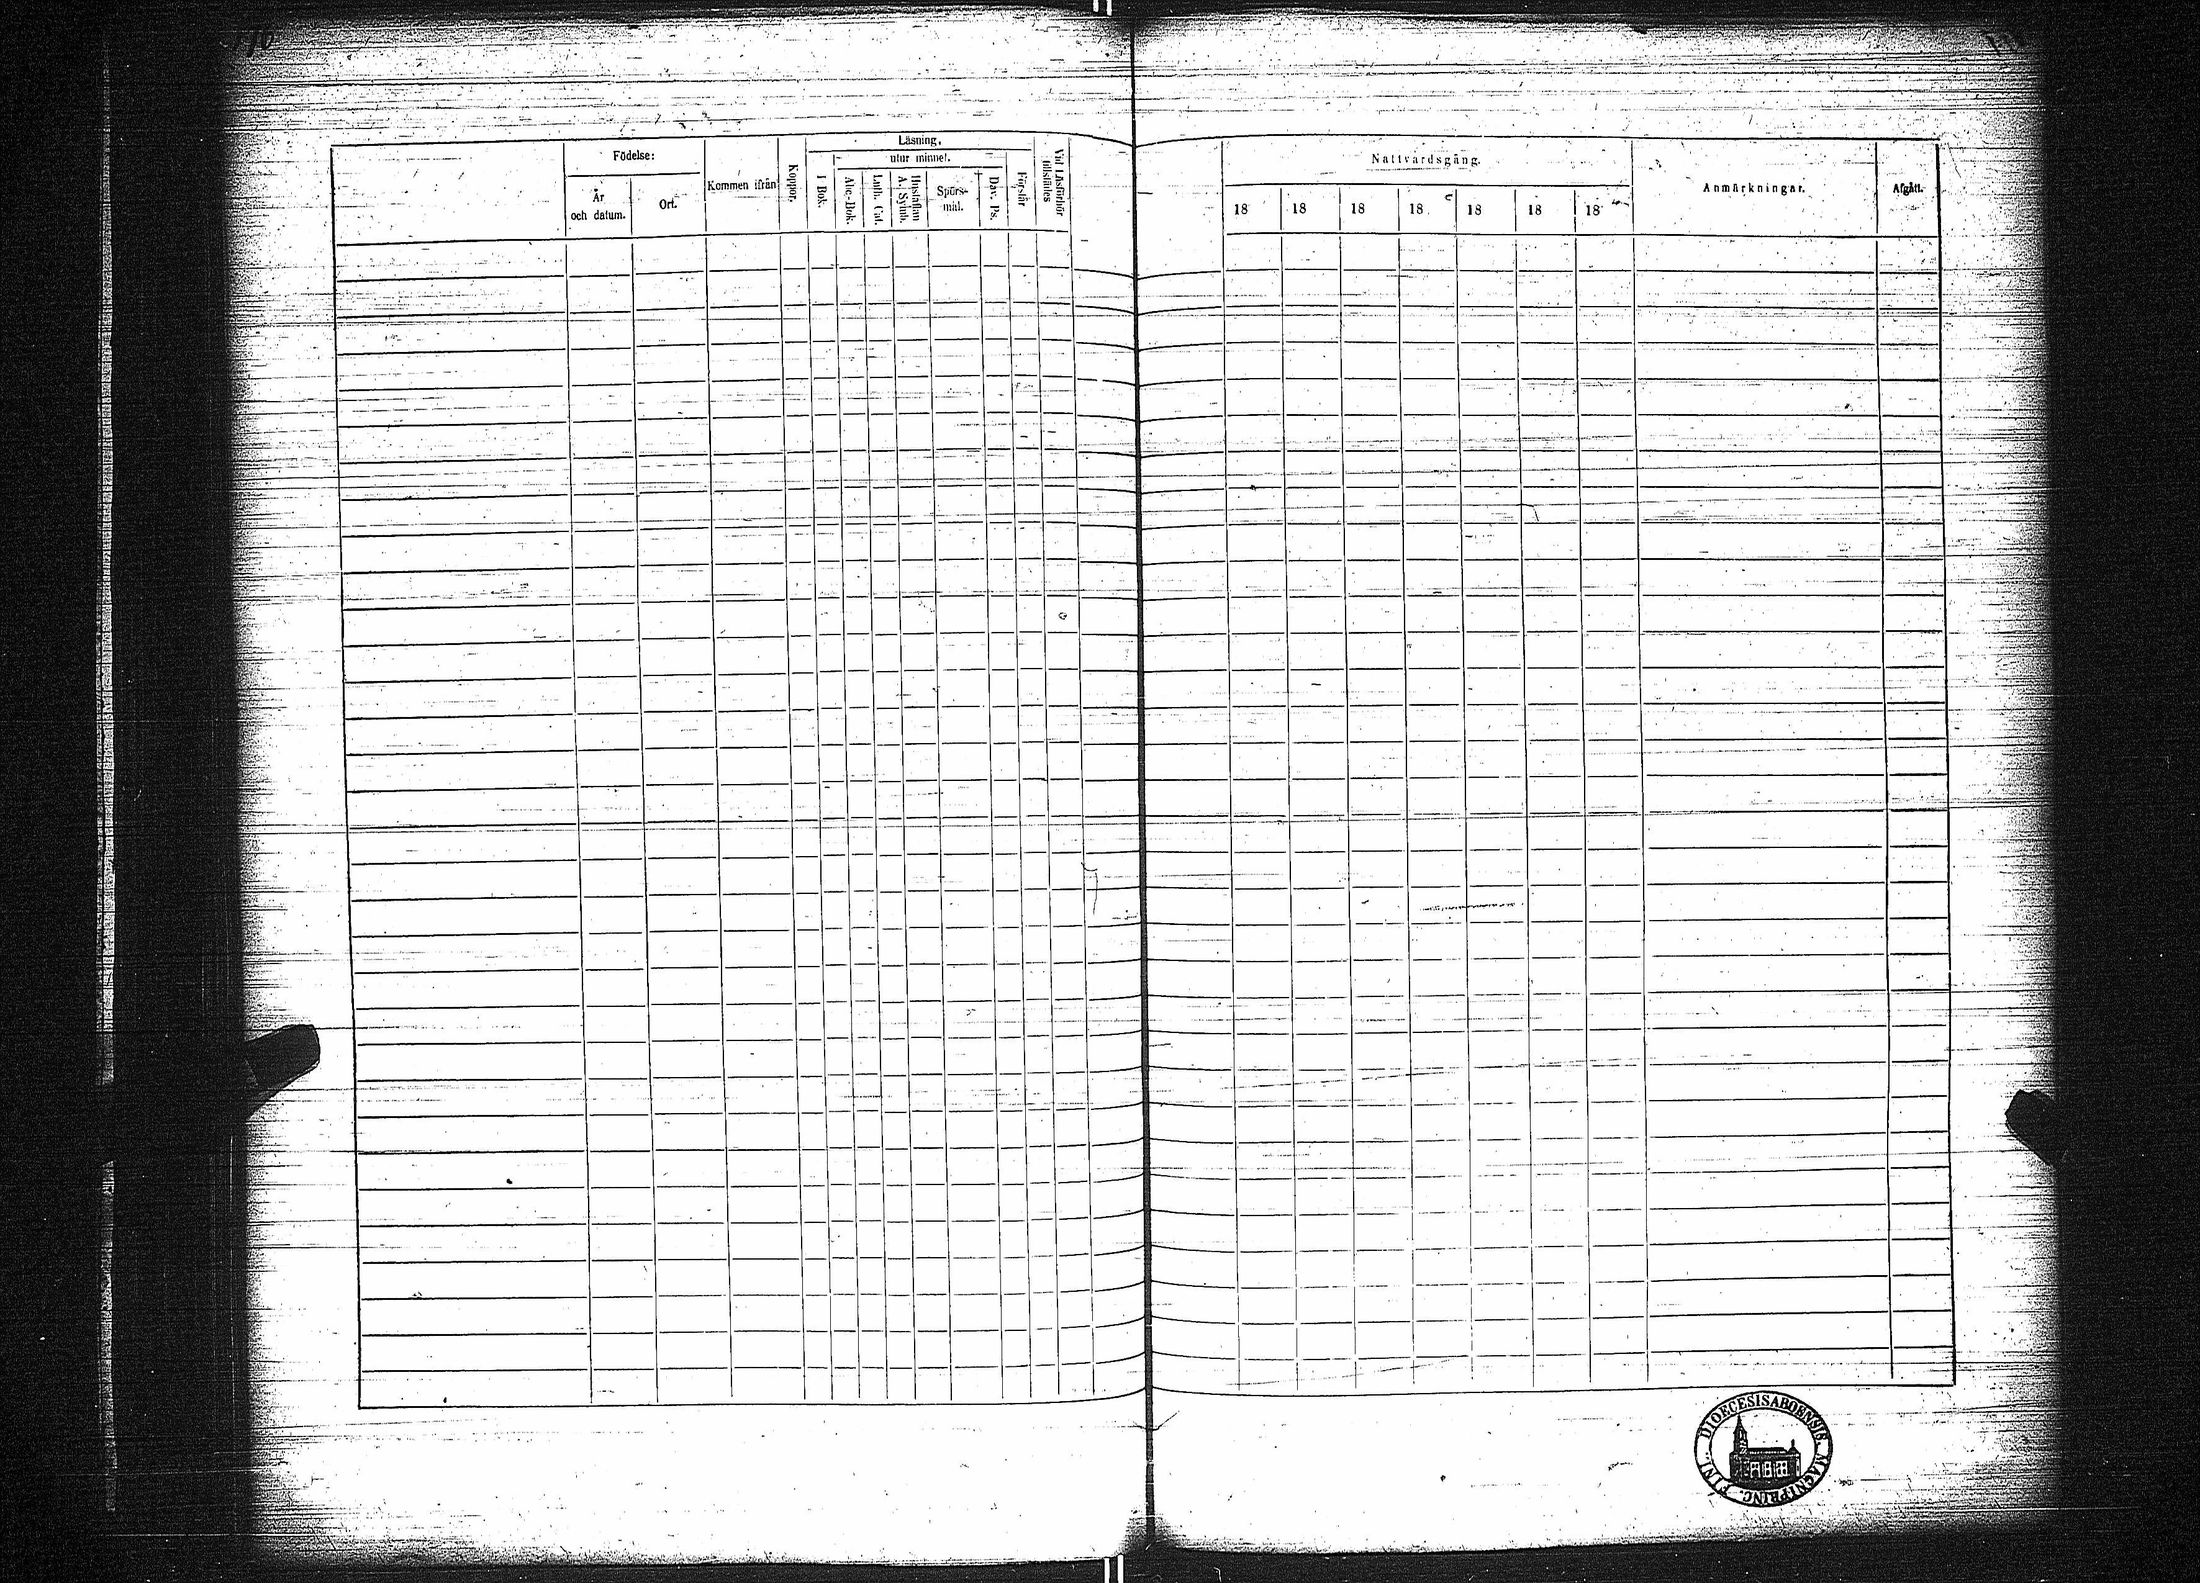 Födelse:
År
och datum.
Ort.
Kommen ifrån
Koppor.
Läsning,
I Bok.
utur minnet.
Abc-Bok.
Luth. Cat.
Hustaflan
A. Symb.
Spörs-
mål.
Dav. Ps.
Förstår
Vid Läsförhör
tillstädes
Nattvardsgång.
18 18 18 18 18 18 18
Anmärkningar.
Afgått.
DIOECESIS ABOENSIS. MAGNI PRINC. FINL.